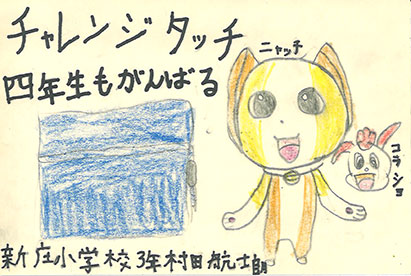 チャレンジタッチ
四年生もがんばる
ニャッチ
コラショ
新庄小学校3年村田航士朗